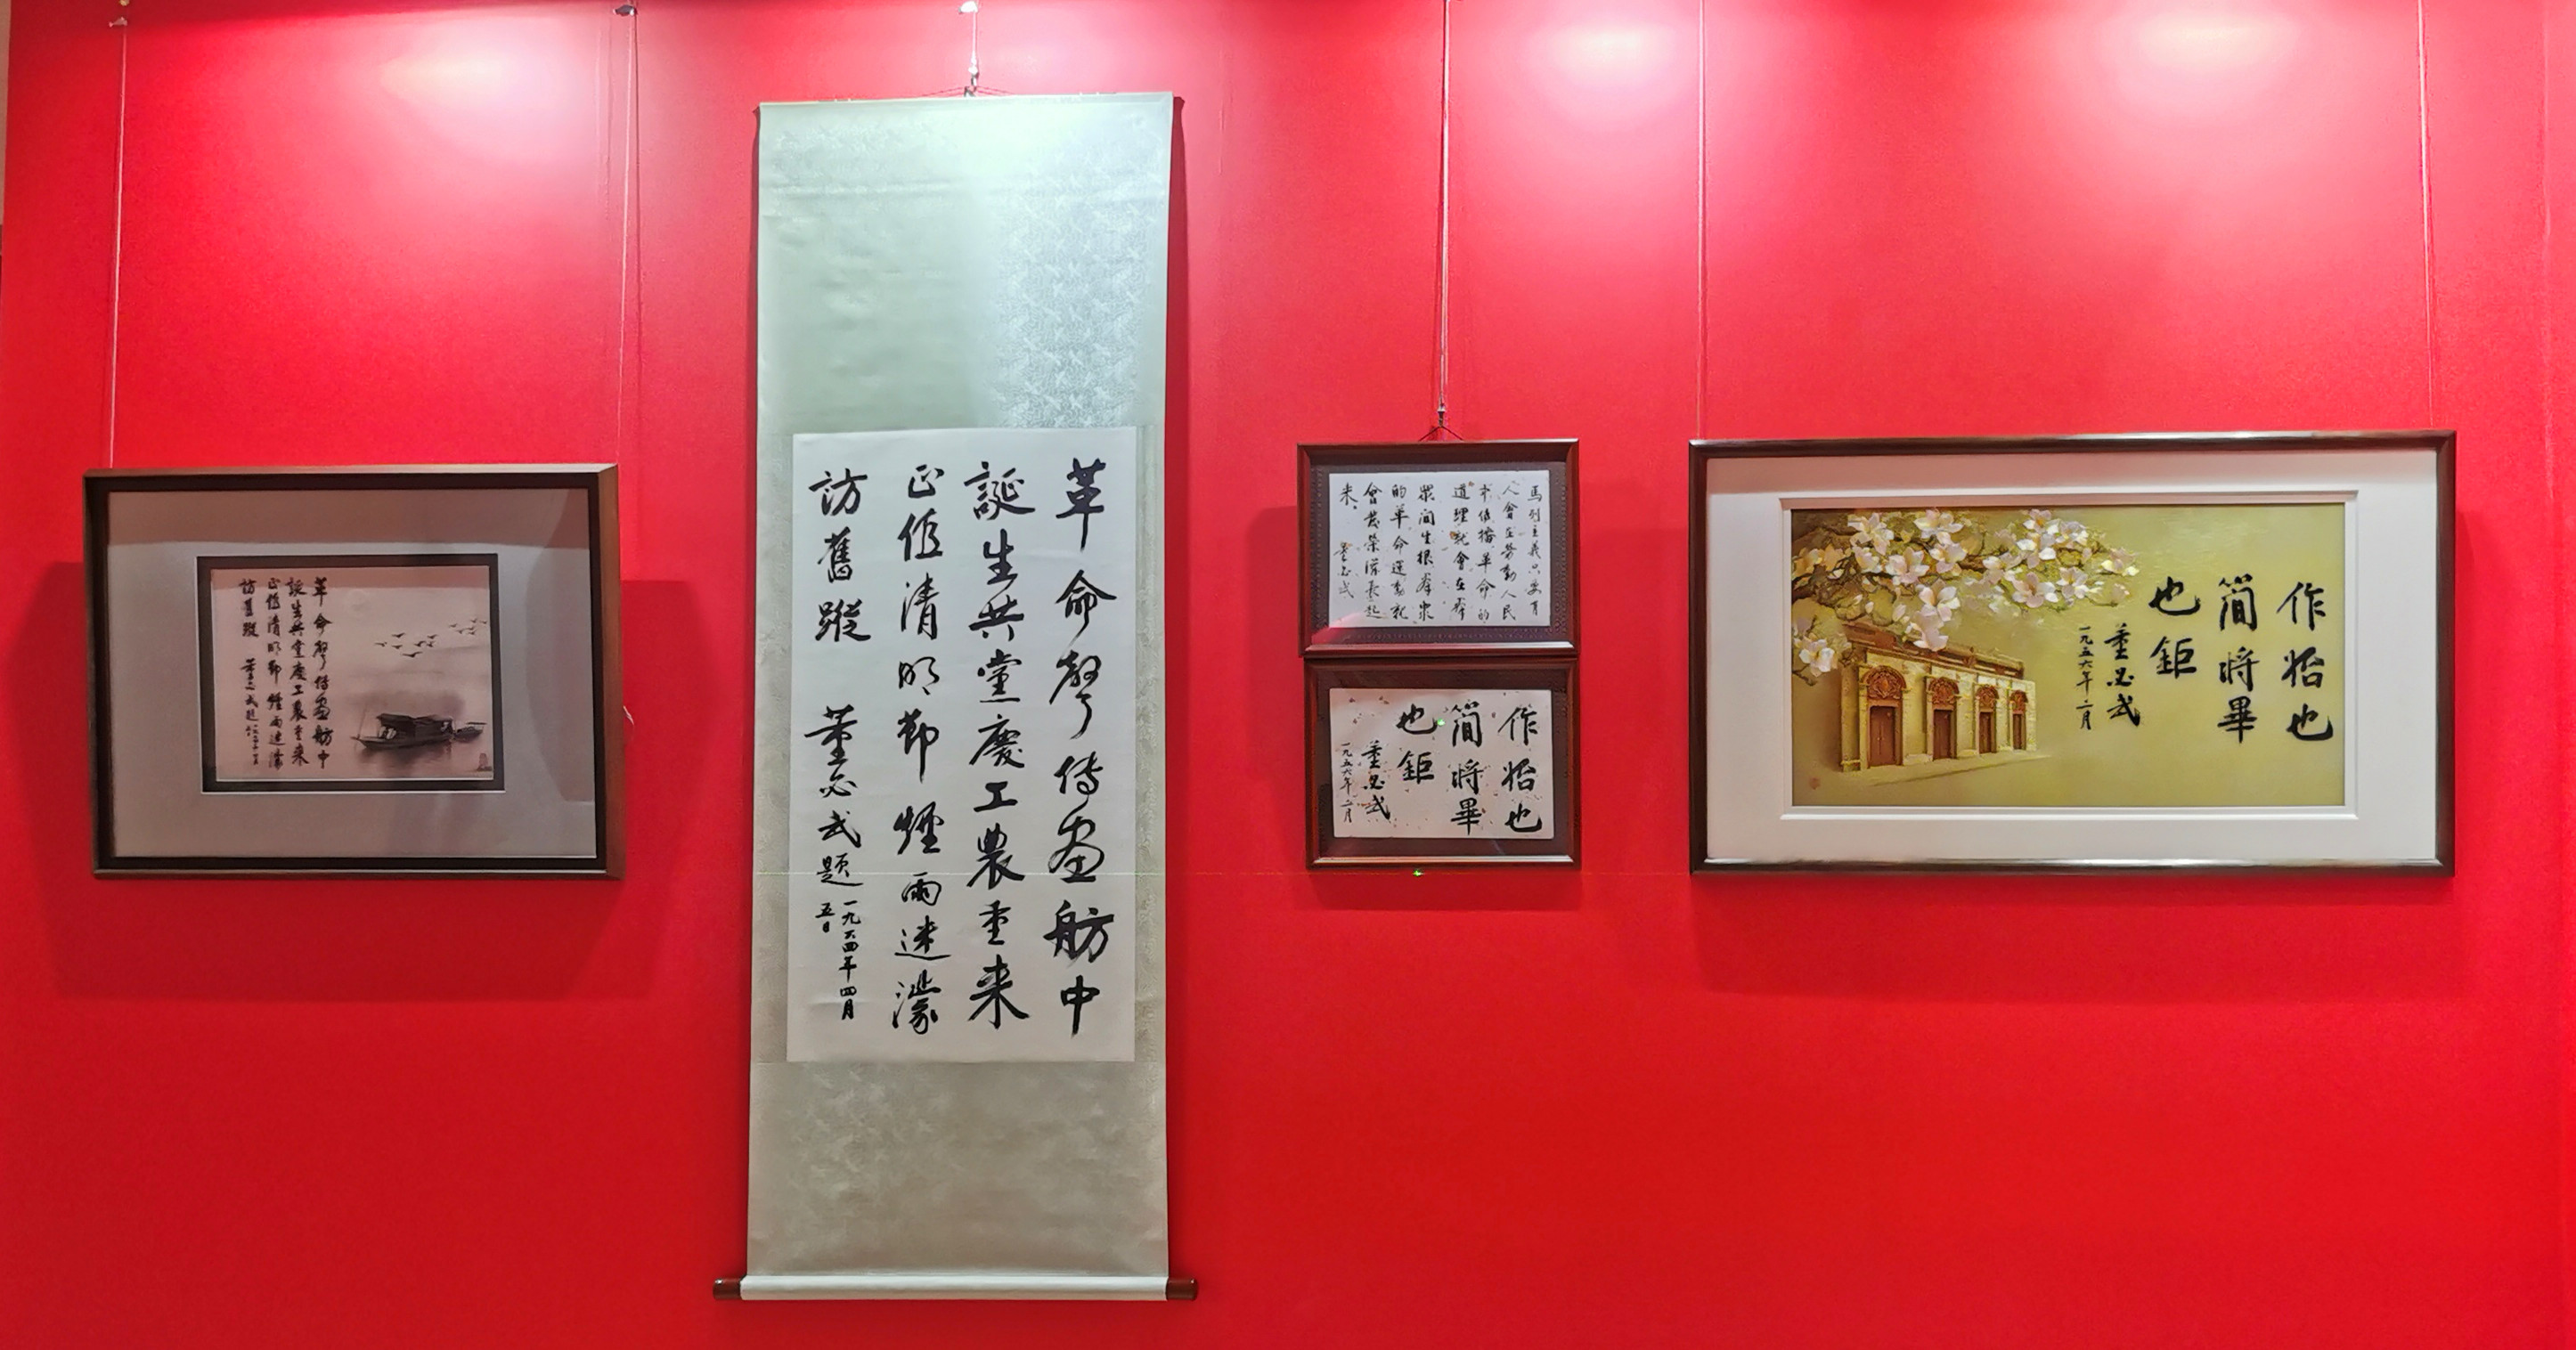 革命聲傳畫舫中
誕生共黨慶工農重来
正值清明節煙雨迷濛
訪舊蹤 董必武題
革命聲傳畫舫中
誕生共黨慶工農重来
正值清明節煙雨迷濛
訪舊蹤 董必武題
一九六四年四月
五日
馬列主義只要有
人會在勞動人民
中傳播革命的
道理就會在群
眾間生根群眾
的革命運動就
會發榮滋長起
来。 董必武
作始也
簡將畢
也鉅
董必武
一九五六年二月
作始也
簡將畢
也鉅
董必武
一九五六年二月